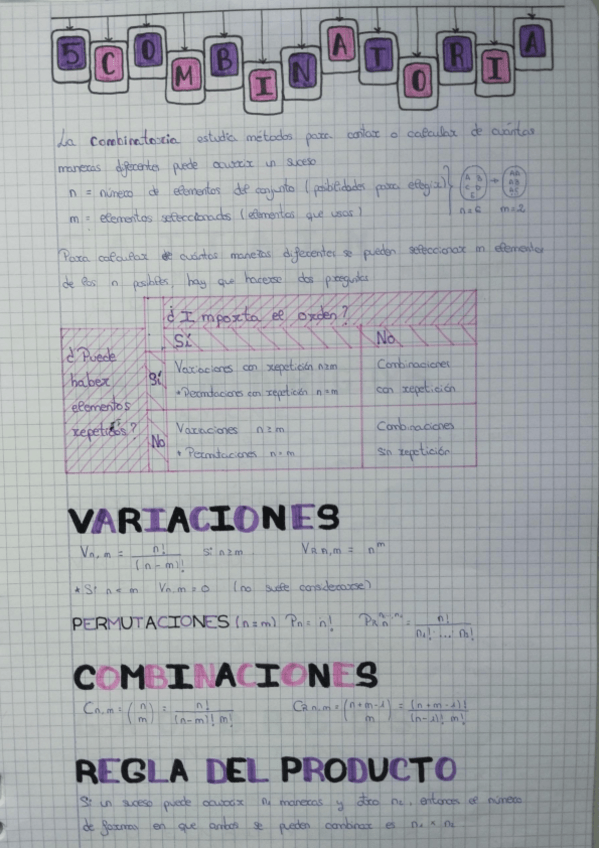 5 COMBINATORIA
La combinatoria estudia métodos para contar o calcular de cuántas
maneras diferentes puede ocurrir un suceso
n = número de elementos del conjunto (posibilidades para elegir)
m = elementos seleccionados (elementos que usas)
n=6 m=2
Para calcular de cuántas maneras diferentes se pueden seleccionar m elementos
de los n posibles, hay que hacerse dos preguntas
¿Importa el orden?
Sí No
¿Puede haber elementos repetidos?
Sí
Variaciones con repetición n≥m
* Permutaciones con repetición n=m
Combinaciones
con repetición
No
Variaciones n≥m
* Permutaciones n=m
Combinaciones
sin repetición
VARIACIONES
Vn,m = n! / (n-m)! si n≥m VRn,m = n^m
* Si n<m Vn,m=0 (no suele considerarse)
PERMUTACIONES (n=m) Pn = n! = n! / n₁! ... nₛ!
COMBINACIONES
Cn,m = (n m) = n! / (n-m)! m! CRn,m = (n+m-1 m) = (n+m-1)! / (n-1)! m!
REGLA DEL PRODUCTO
Si un suceso puede ocurrir n₁ maneras y otro n₂, entonces el número
de formas en que ambos se pueden combinar es